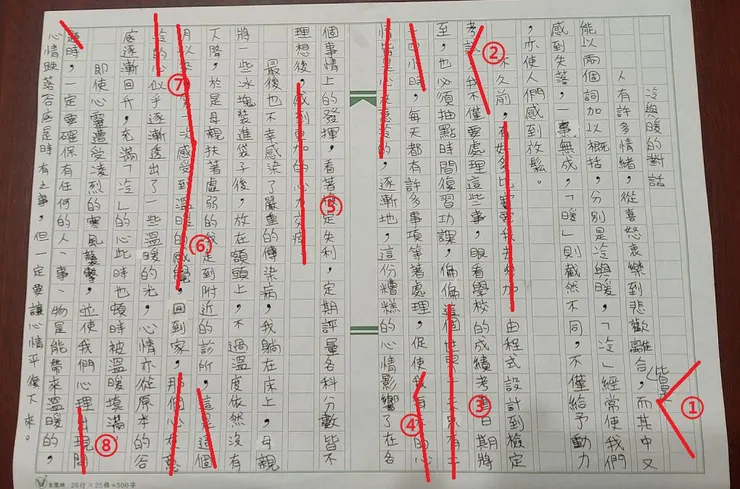 冷與暖的對話
人有許多情緒,從喜怒哀樂到悲歡離合,皆是而其中又
①
能以兩個詞加以概括,分別是冷與暖,「冷」經常使我們
感到失落,一事無成,「暖」則截然不同,不僅給予動力
,亦使人們感到放鬆。
不久前,有好多比賽要我去參加 由程式設計到檢定
②
考試,我不僅要處理這些事,眼看學校的成績考查日期將
③
至,也必須抽點時間復習功課,偏偏這個世界一天只有二
十四小時,每天都有許多事項等著處理,促使我每天的心
④
情皆是心灰意冷的,逐漸地,這份糟糕的心情影響了在各
個事情上的發揮,看著檢定失利,定期評量各科分數皆不
⑤
理想後,感到更加的心力交瘁
最後也不幸感染了嚴重的傳染病,我躺在床上,母親
將一些冰塊裝進袋子後,放在額頭上,不過溫度依然沒有
下降,於是母親扶著虛弱的我走到附近的診所,這是這個
⑥
月以來第一次感受到溫暖的感覺,回到家,那個心灰意
⑦
冷的心似乎逐漸透出了一些溫暖的光,心情亦從原本的谷
底逐漸回升,充滿「冷」的心此時也頓時被溫暖填滿
即使心靈遭受凌烈的寒風襲擊,並使我們心理出現問
⑧
題時,一定要確保有任何的人、事、物是能帶來溫暖的,
心情跌落谷底是時有之事,但一定要讓心情平復下來。
20行×25格=500字